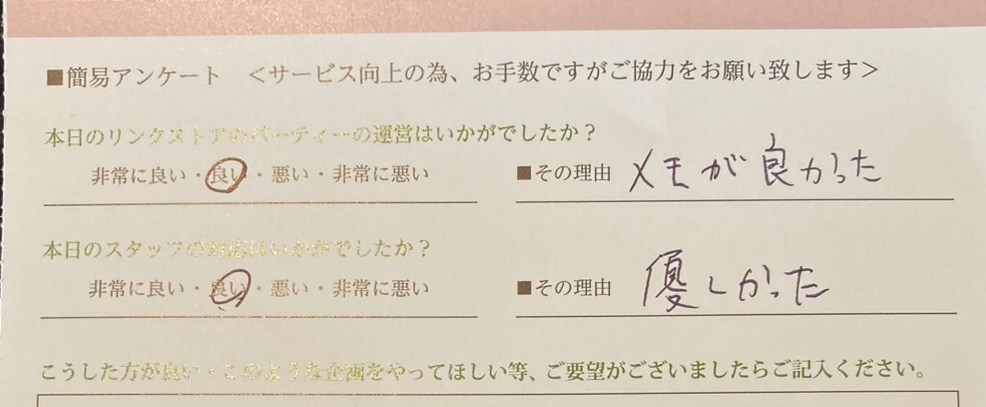 ■簡易アンケート <サービス向上の為、お手数ですがご協力をお願い致します>
本日のリンクストアのパーティーの運営はいかがでしたか?
非常に良い・良い・悪い・非常に悪い ■その理由 メモが良かった
本日のスタッフの対応はいかがでしたか?
非常に良い・良い・悪い・非常に悪い ■その理由 優しかった
こうした方が良い・このような企画をやってほしい等、ご要望がございましたらご記入ください。